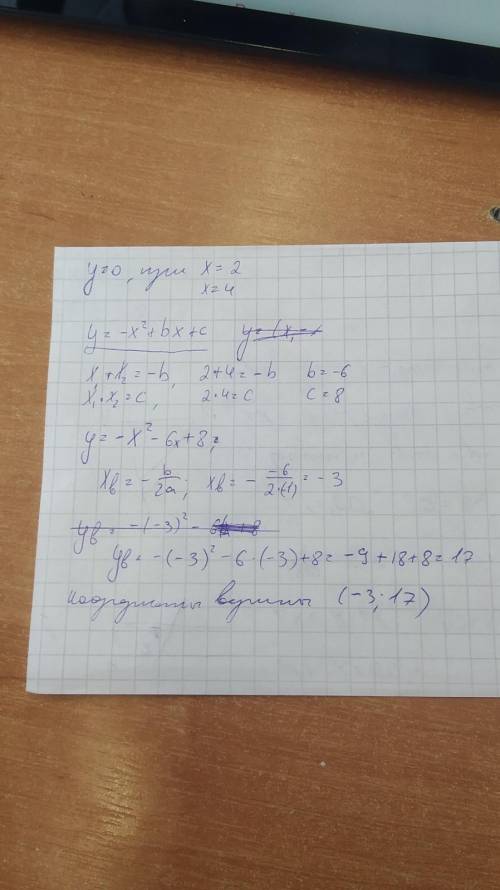 y=0, при x=2
x=4
y=-x²+bx+c
x₁+x₂=-b, 2+4=-b b=-6
x₁·x₂=c, 2·4=c c=8
y=-x²-6x+8;
xв=-b/2a; xв=-(-6)/(2·(-1))=-3
yв=-(-3)²-
yв=-(-3)²-6·(-3)+8=-9+18+8=17
координаты вершины (-3; 17)